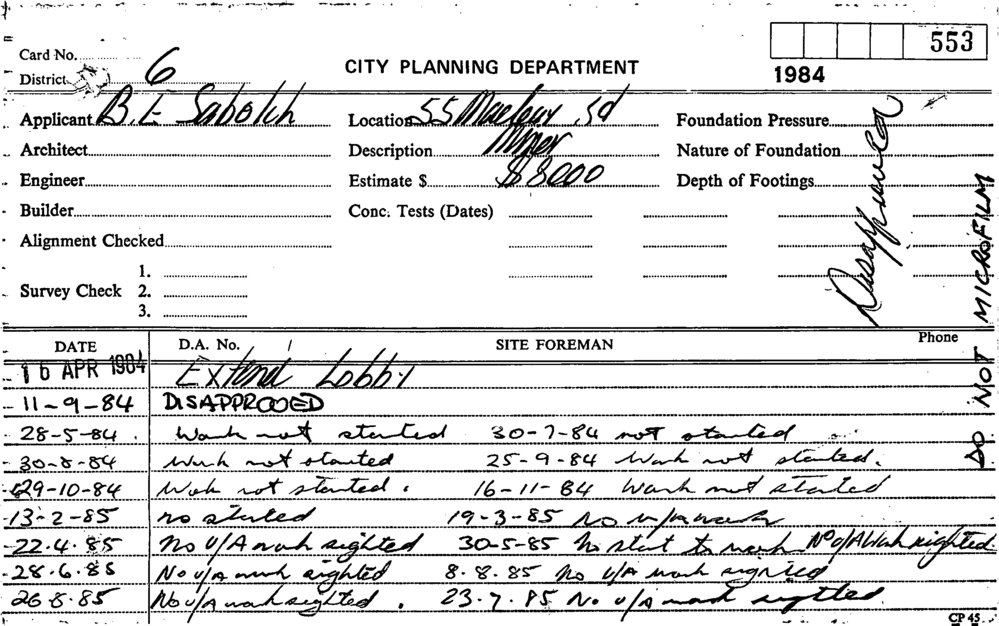 553
Card No.
District 6
CITY PLANNING DEPARTMENT
1984
Applicant B. E Sabolch Location 55 Macleay Sd Foundation Pressure
Architect Description Minor Nature of Foundation
Engineer Estimate $ $8000 Depth of Footings
Builder Conc. Tests (Dates)
Alignment Checked
1.
Survey Check 2.
3.
Disapproved
DO NOT MICROFILM
DATE D.A. No. SITE FOREMAN Phone
16 APR 1984 Extend Lobby
11-9-84 DISAPPROOED
28-5-84 Work not started 30-7-84 not started
30-8-84 Work not started 25-9-84 Work not started.
29-10-84 Work not started. 16-11-84 Work not started
13-2-85 no started 19-3-85 No u/a work
22.4.85 No U/A work sighted 30-5-85 No start to work No U/A Work sighted
28.6.85 No u/a work sighted 8.8.85 No u/A work sighted
26.8.85 No u/a work sighted. 23.7.85 No u/a work sighted.
CP 45